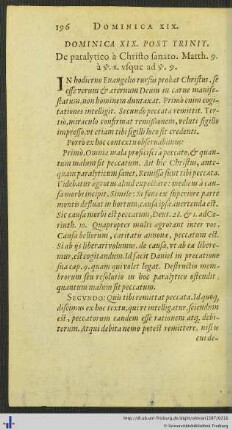 196 DOMINICA XIX.
DOMINICA XIX. POST TRINIT.
De paralytico à Christo sanato. Matth. 9.
à ℣. 1. vsque ad ℣. 9.
IN hodierno Euangelio rursus probat Christus, se
esse verum & æternum Deum in carne manife-
statum, non hominem duntaxat. Primò enim cogi-
tationes intelligit. Secundò peccata remittit. Ter-
tiò, miraculo confirmat remissionem, velut sigillo
impresso, vt etiam tibi sigilli loco sit credenti.
Porrò ex hoc contextu obseruabimus:
Primò, Omnia mala proficisci à peccato, & quan-
tum malum sit peccatum. Ait hic Christus, ante-
quam paralyticum sanet, Remissa sunt tibi peccata.
Videbatur ægrotus aliud expectare: medium à cau-
sa morbi incepit. Simile: Si fons ex superiore parte
montis defluat in hortum, causa ipsa auertenda est.
Sic causa morbi est peccatum, Deut. 28. & 1. ad Co-
rinth. 10. Quapropter multi ægrotant inter vos.
Causa bellorum, caritatis annonæ, peccatum est.
Si ab ijs liberari volumus, de causa, vt ab ea libere-
mur, est cogitandum. Id facit Daniel in precatione
sua cap. 9. quam qui volet legat. Destructio mem-
brorum seu resolutio in hoc paralytico ostendit,
quantum malum sit peccatum.
SECVNDO: Quis tibi remittat peccata. Id quoq,
discimus ex hoc textu, qui vt intelligatur, sciendum
est, peccatorum eandem esse rationem atq, debi-
torum. Atqui debita nemo potest remittere, nisi is
cui de-